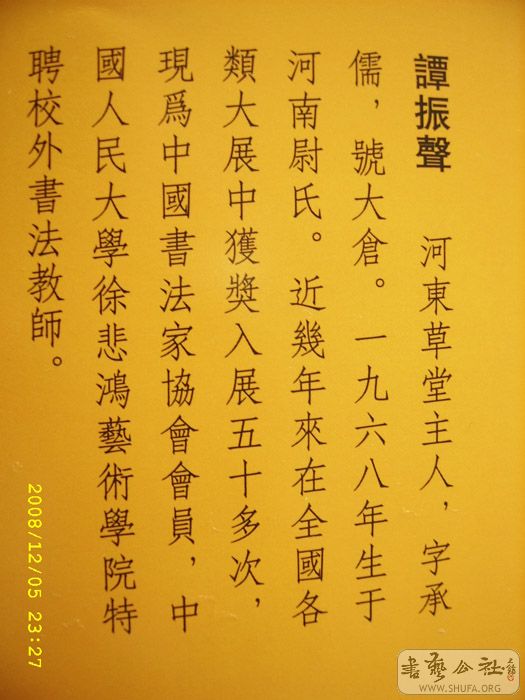 譚振聲　河東草堂主人，字承
儒，號大倉。一九六八年生于
河南尉氏。近幾年來在全國各
類大展中獲獎入展五十多次，
現爲中國書法家協會會員，中
國人民大學徐悲鴻藝術學院特
聘校外書法教師。
2008/12/05 23:27
書藝公社
WWW.SHUFA.ORG